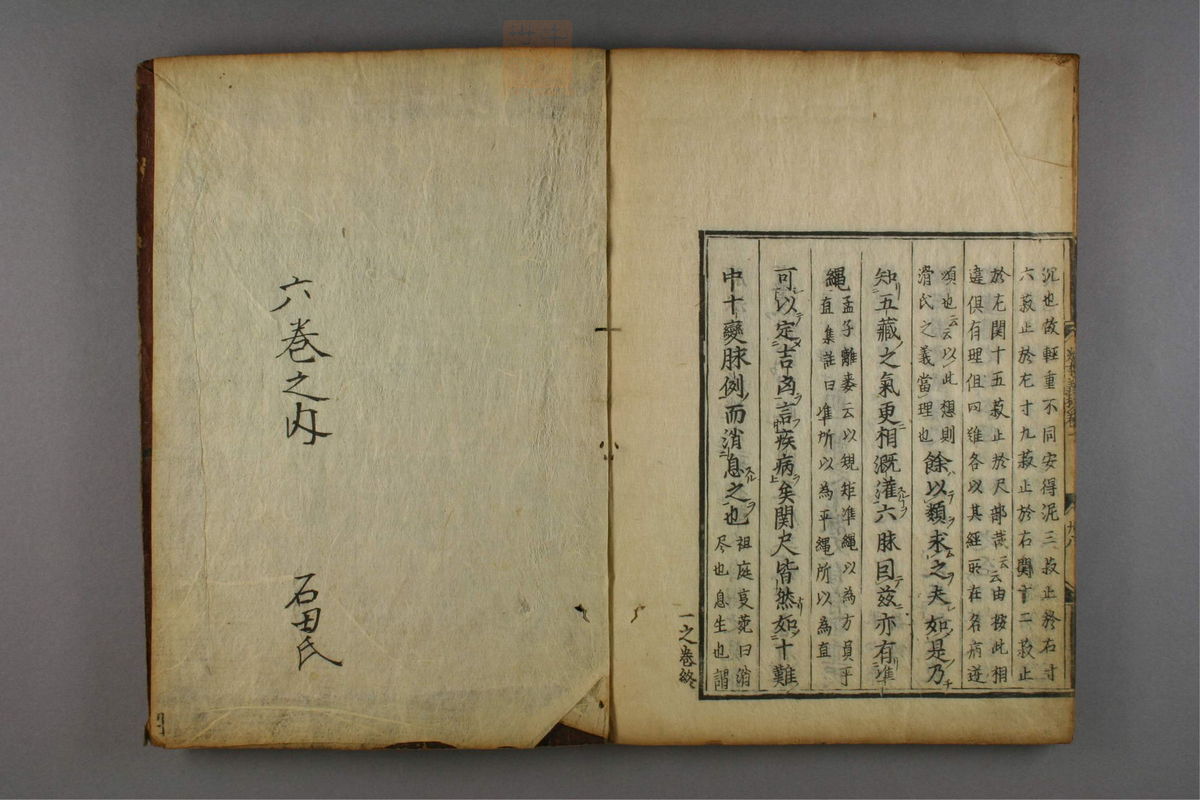 沉也故輕重不同安得泥三菽止於右寸
六菽止於左寸九菽止於右関十二菽止
於左関十五菽止於尺部哉云云由按此相
違俱有理但叼雖各以其經所在名病逆
順也云云以此想則
滑氏之義當理也
餘以類求之夫如是乃
知五藏之氣更相溉灌六脉因茲亦有準
繩
孟子離婁云以規矩準繩以為方員平
直集註曰準所以為平繩所以為直
可以定吉凶言疾病矣関尺皆然如十難
中十變脉例而消息之也
祖庭事苑曰消
尽也息生也謂
一之卷終
六巻之内
石田氏